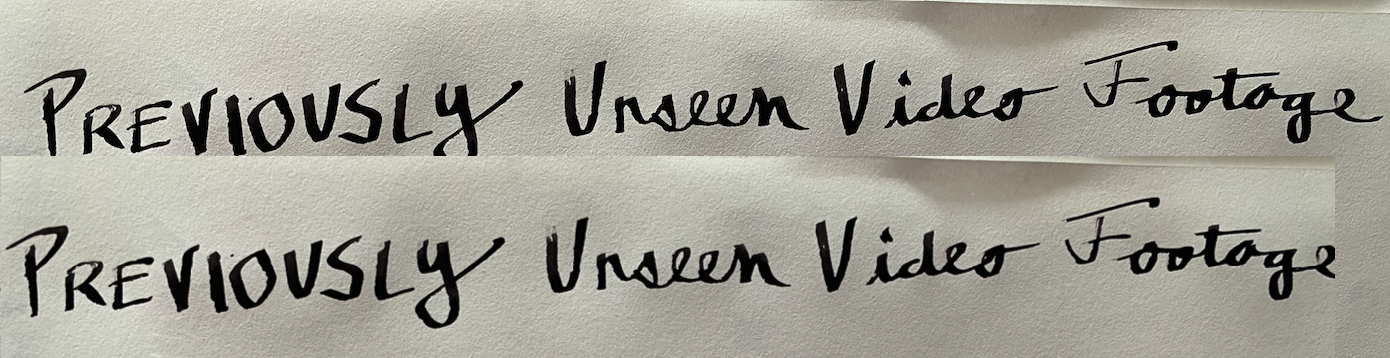 PREVIOUSLY Unseen Video Footage
PREVIOUSLY Unseen Video Footage